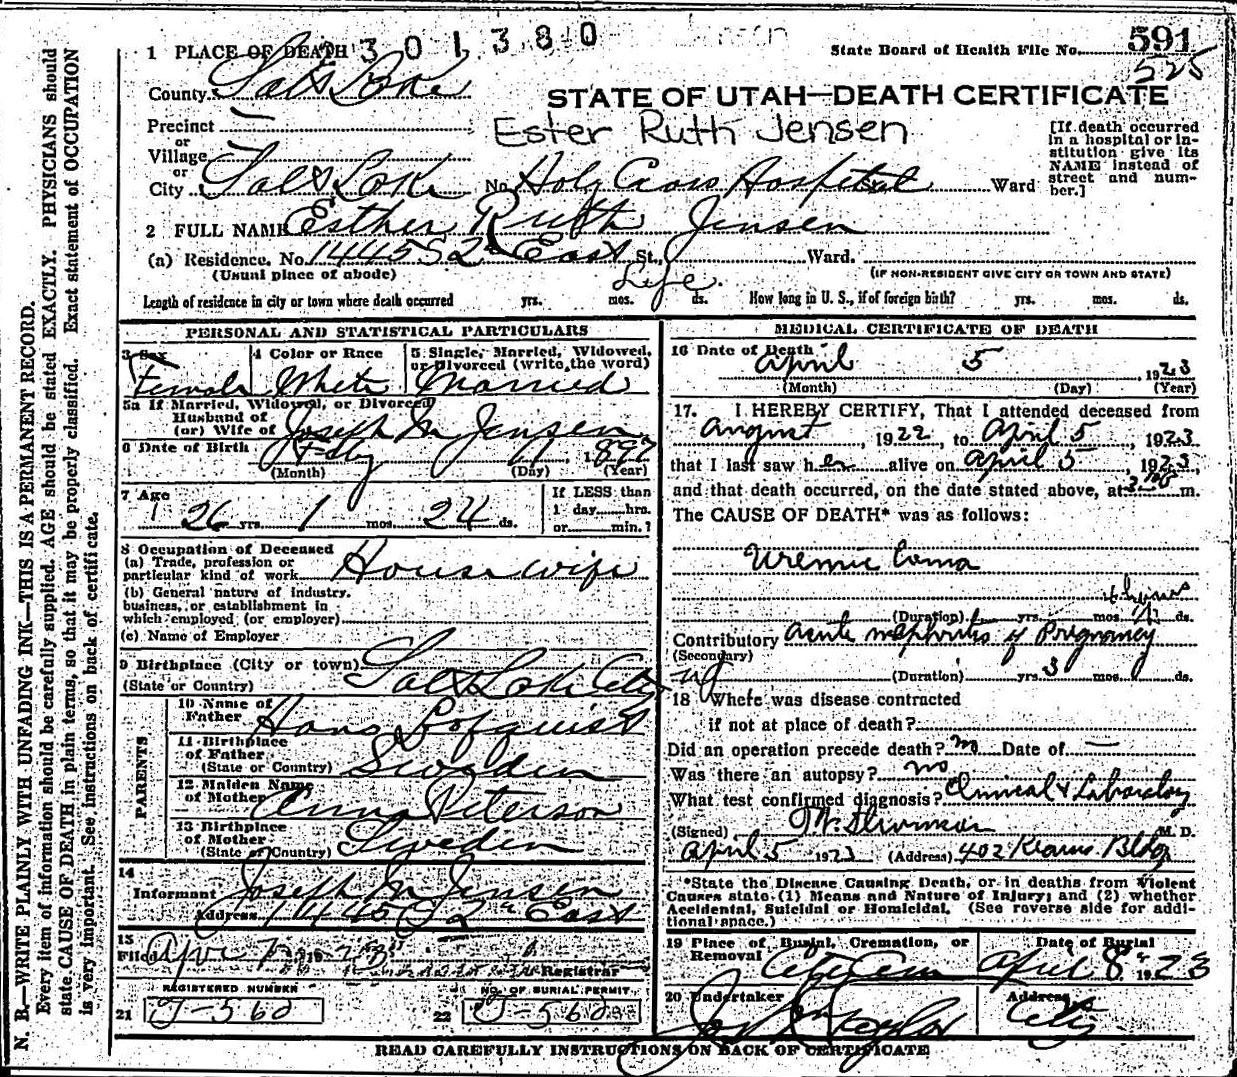 1 PLACE OF DEATH 301380
State Board of Health File No. 591
525
County Salt Lake
STATE OF UTAH—DEATH CERTIFICATE
Precinct
Ester Ruth Jensen
or
Village
or
City Salt Lake No. Holy Cross Hospital Ward
[If death occurred
in a hospital or in-
stitution give its
NAME instead of
street and num-
ber.]
2 FULL NAME Esther Ruth Jensen
(a) Residence. No. 1445 S 2nd East St., Ward.
(Usual place of abode)
(IF NON-RESIDENT GIVE CITY OR TOWN AND STATE)
Life.
Length of residence in city or town where death occurred yrs. mos. ds. How long in U. S., if of foreign birth? yrs. mos. ds.
PERSONAL AND STATISTICAL PARTICULARS
3 Sex
Female
4 Color or Race
White
5 Single, Married, Widowed,
or Divorced (write the word)
Married
5a If Married, Widowed, or Divorced
Husband of
(or) Wife of Joseph M Jensen
6 Date of Birth 1897
(Month) (Day) (Year)
7 Age
26 yrs. 1 mos. 24 ds.
If LESS than
1 day hrs.
or min.?
8 Occupation of Deceased
(a) Trade, profession or
particular kind of work Housewife
(b) General nature of industry,
business, or establishment in
which employed (or employer)
(c) Name of Employer
9 Birthplace (City or town) Salt Lake City
(State or Country)
PARENTS
10 Name of
Father Hans Lofquist
11 Birthplace
of Father
(State or Country) Sweden
12 Maiden Name
of Mother Anna Peterson
13 Birthplace
of Mother
(State or Country) Sweden
14
Informant Joseph M Jensen
Address 1445 S 2nd East
15
Filed Apr 7 19 23
Registrar
REGISTERED NUMBER
21 J-560
NO. OF BURIAL PERMIT
22 J-560
MEDICAL CERTIFICATE OF DEATH
16 Date of Death
April 5 1923
(Month) (Day) (Year)
17. I HEREBY CERTIFY, That I attended deceased from
August, 1922, to April 5, 1923
that I last saw her alive on April 5, 1923,
and that death occurred, on the date stated above, at m.
The CAUSE OF DEATH* was as follows:
Uremic Coma
(Duration) yrs. mos. ds.
Contributory Acute nephritis of Pregnancy
(Secondary)
(Duration) yrs. 3 mos. ds.
18 Where was disease contracted
if not at place of death?
Did an operation precede death? no Date of —
Was there an autopsy? no
What test confirmed diagnosis? Clinical & Laboratory
(Signed) M. D.
April 5 1923 (Address) 402 Kearns Bldg
*State the Disease Causing Death, or in deaths from Violent
Causes state (1) Means and Nature of Injury; and (2) whether
Accidental, Suicidal or Homicidal. (See reverse side for addi-
tional space.)
19 Place of Burial, Cremation, or
Removal City Cem
Date of Burial
April 8 1923
20 Undertaker
Jos Wm Taylor
Address
City
READ CAREFULLY INSTRUCTIONS ON BACK OF CERTIFICATE
N. B.—WRITE PLAINLY WITH UNFADING INK—THIS IS A PERMANENT RECORD.
Every item of information should be carefully supplied. AGE should be stated EXACTLY. PHYSICIANS should
state CAUSE OF DEATH in plain terms, so that it may be properly classified. Exact statement of OCCUPATION
is very important. See instructions on back of certificate.